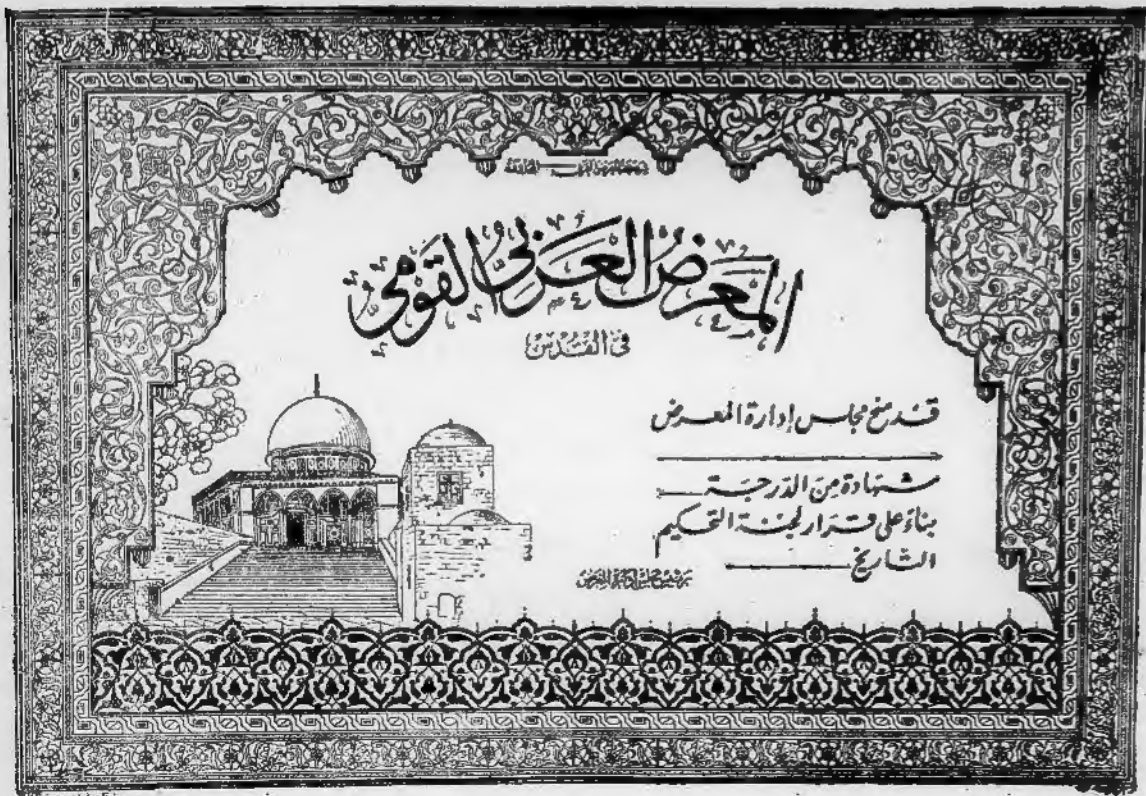 المَعرَضُ العَرَبيُّ القَومِيُّ
في القُدس
قد منح مجلس إدارة المعرض
شهادة مِنَ الدرجَة
بناءً على قرار لجنة التحكيم
التاريخ
رئيس مجلس إدارة المعرض